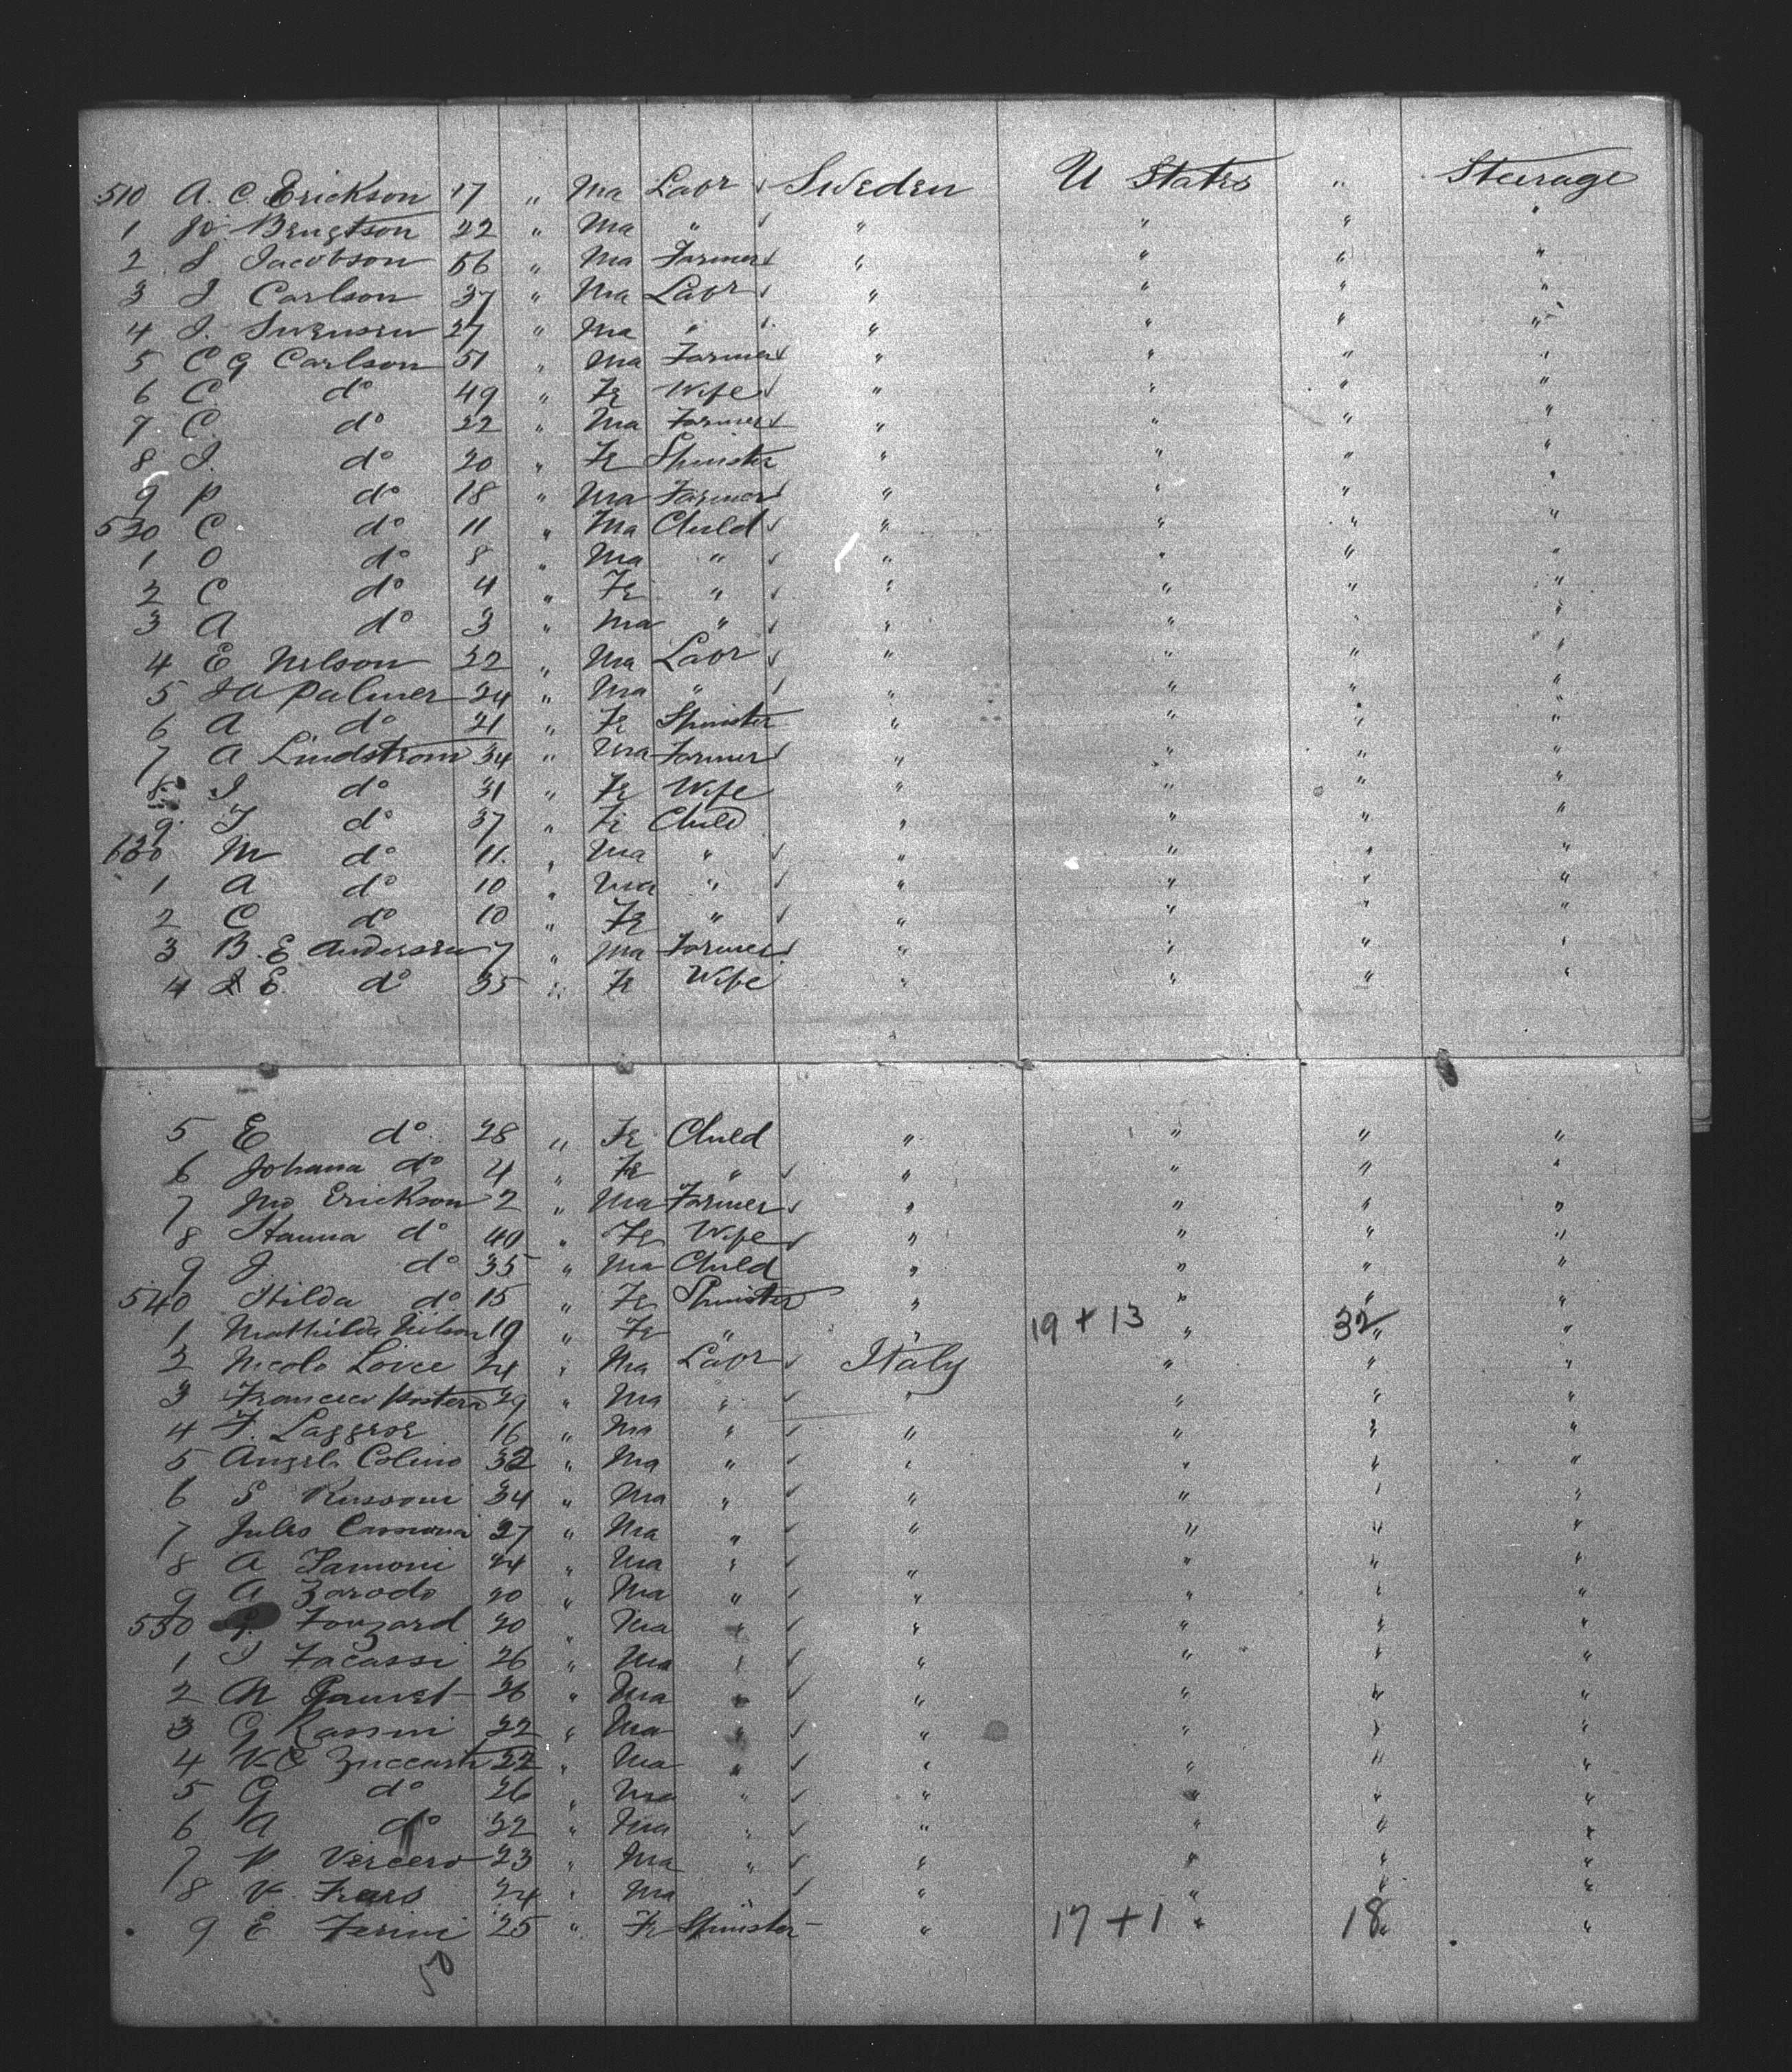 510 A. C. Erickson 17 " Ma Labr ✓ Sweden U States " Steerage
1 Jo. Bengtson 22 " Ma " ✓ " " " "
2 S Jacobson 56 " Ma Farmer ✓ " " " "
3 J Carlson 37 " Ma Labr ✓ " " " "
4 J. Swensen 27 " Ma " ✓ " " " "
5 C G Carlson 51 " Ma Farmer ✓ " " " "
6 C. do 49 " Fe Wife ✓ " " " "
7 C. do 22 " Ma Farmer ✓ " " " "
8 J. do 20 " Fe Spinster " " " "
9 P do 18 " Ma Farmer ✓ " " " "
520 C do 11 " Ma Child ✓ " " " "
1 O do 8 " Ma " ✓ " " " "
2 C do 4 " Fe " ✓ " " " "
3 A do 3 " Ma " ✓ " " " "
4 E Nelson 22 " Ma Labr ✓ " " " "
5 JA Palmer 24 " Ma " ✓ " " " "
6 A do 21 " Fe Spinster " " " "
7 A Lindstrom 34 " Ma Farmer ✓ " " " "
8 J do 31 " Fe Wife " " " "
9 T do 37 " Fe Child " " " "
630 M do 11 " Ma " ✓ " " " "
1 A do 10 " Ma " ✓ " " " "
2 C do 10 " Fe " ✓ " " " "
3 B. E. Andersen 7 " Ma Farmer ✓ " " " "
4 E. do 35 " Fe Wife " " " "
5 E do 28 " Fe Child " " " "
6 Johana do 4 " Fe " ✓ " " " "
7 Jno Erickson 2 " Ma Farmer ✓ " " " "
8 Hanna do 40 " Fe Wife ✓ " " " "
9 J. do 35 " Ma Child " " " "
540 Hilda do 15 " Fe Spinster " " " "
1 Mathilda Nilson 19 " Fe " " 19 + 13 " 32 " "
2 Nicolo Loice 24 " Ma Labr ✓ Italy " " "
3 Francesco 29 " Ma " ✓ " " " "
4 F. 16 " Ma " ✓ " " " "
5 Angelo Colino 32 " Ma " ✓ " " " "
6 S Russoni 34 " Ma " ✓ " " " "
7 Jules 27 " Ma " ✓ " " " "
8 A Famoni 24 " Ma " ✓ " " " "
9 A Zarodo 20 " Ma " ✓ " " " "
550 Fouzard 20 " Ma " ✓ " " " "
1 J Facassi 26 " Ma " ✓ " " " "
2 26 " Ma " ✓ " " " "
3 G Rassini 22 " Ma " ✓ " " " "
4 22 " Ma " ✓ " " " "
5 G do 26 " Ma " ✓ " " " "
6 A do 22 " Ma " ✓ " " " "
7 P Vercero 23 " Ma " ✓ " " " "
8 V. 24 " Ma " ✓ " " " "
9 E Ferini 25 " Fe Spinster " 17 + 1 " 18 " "
50